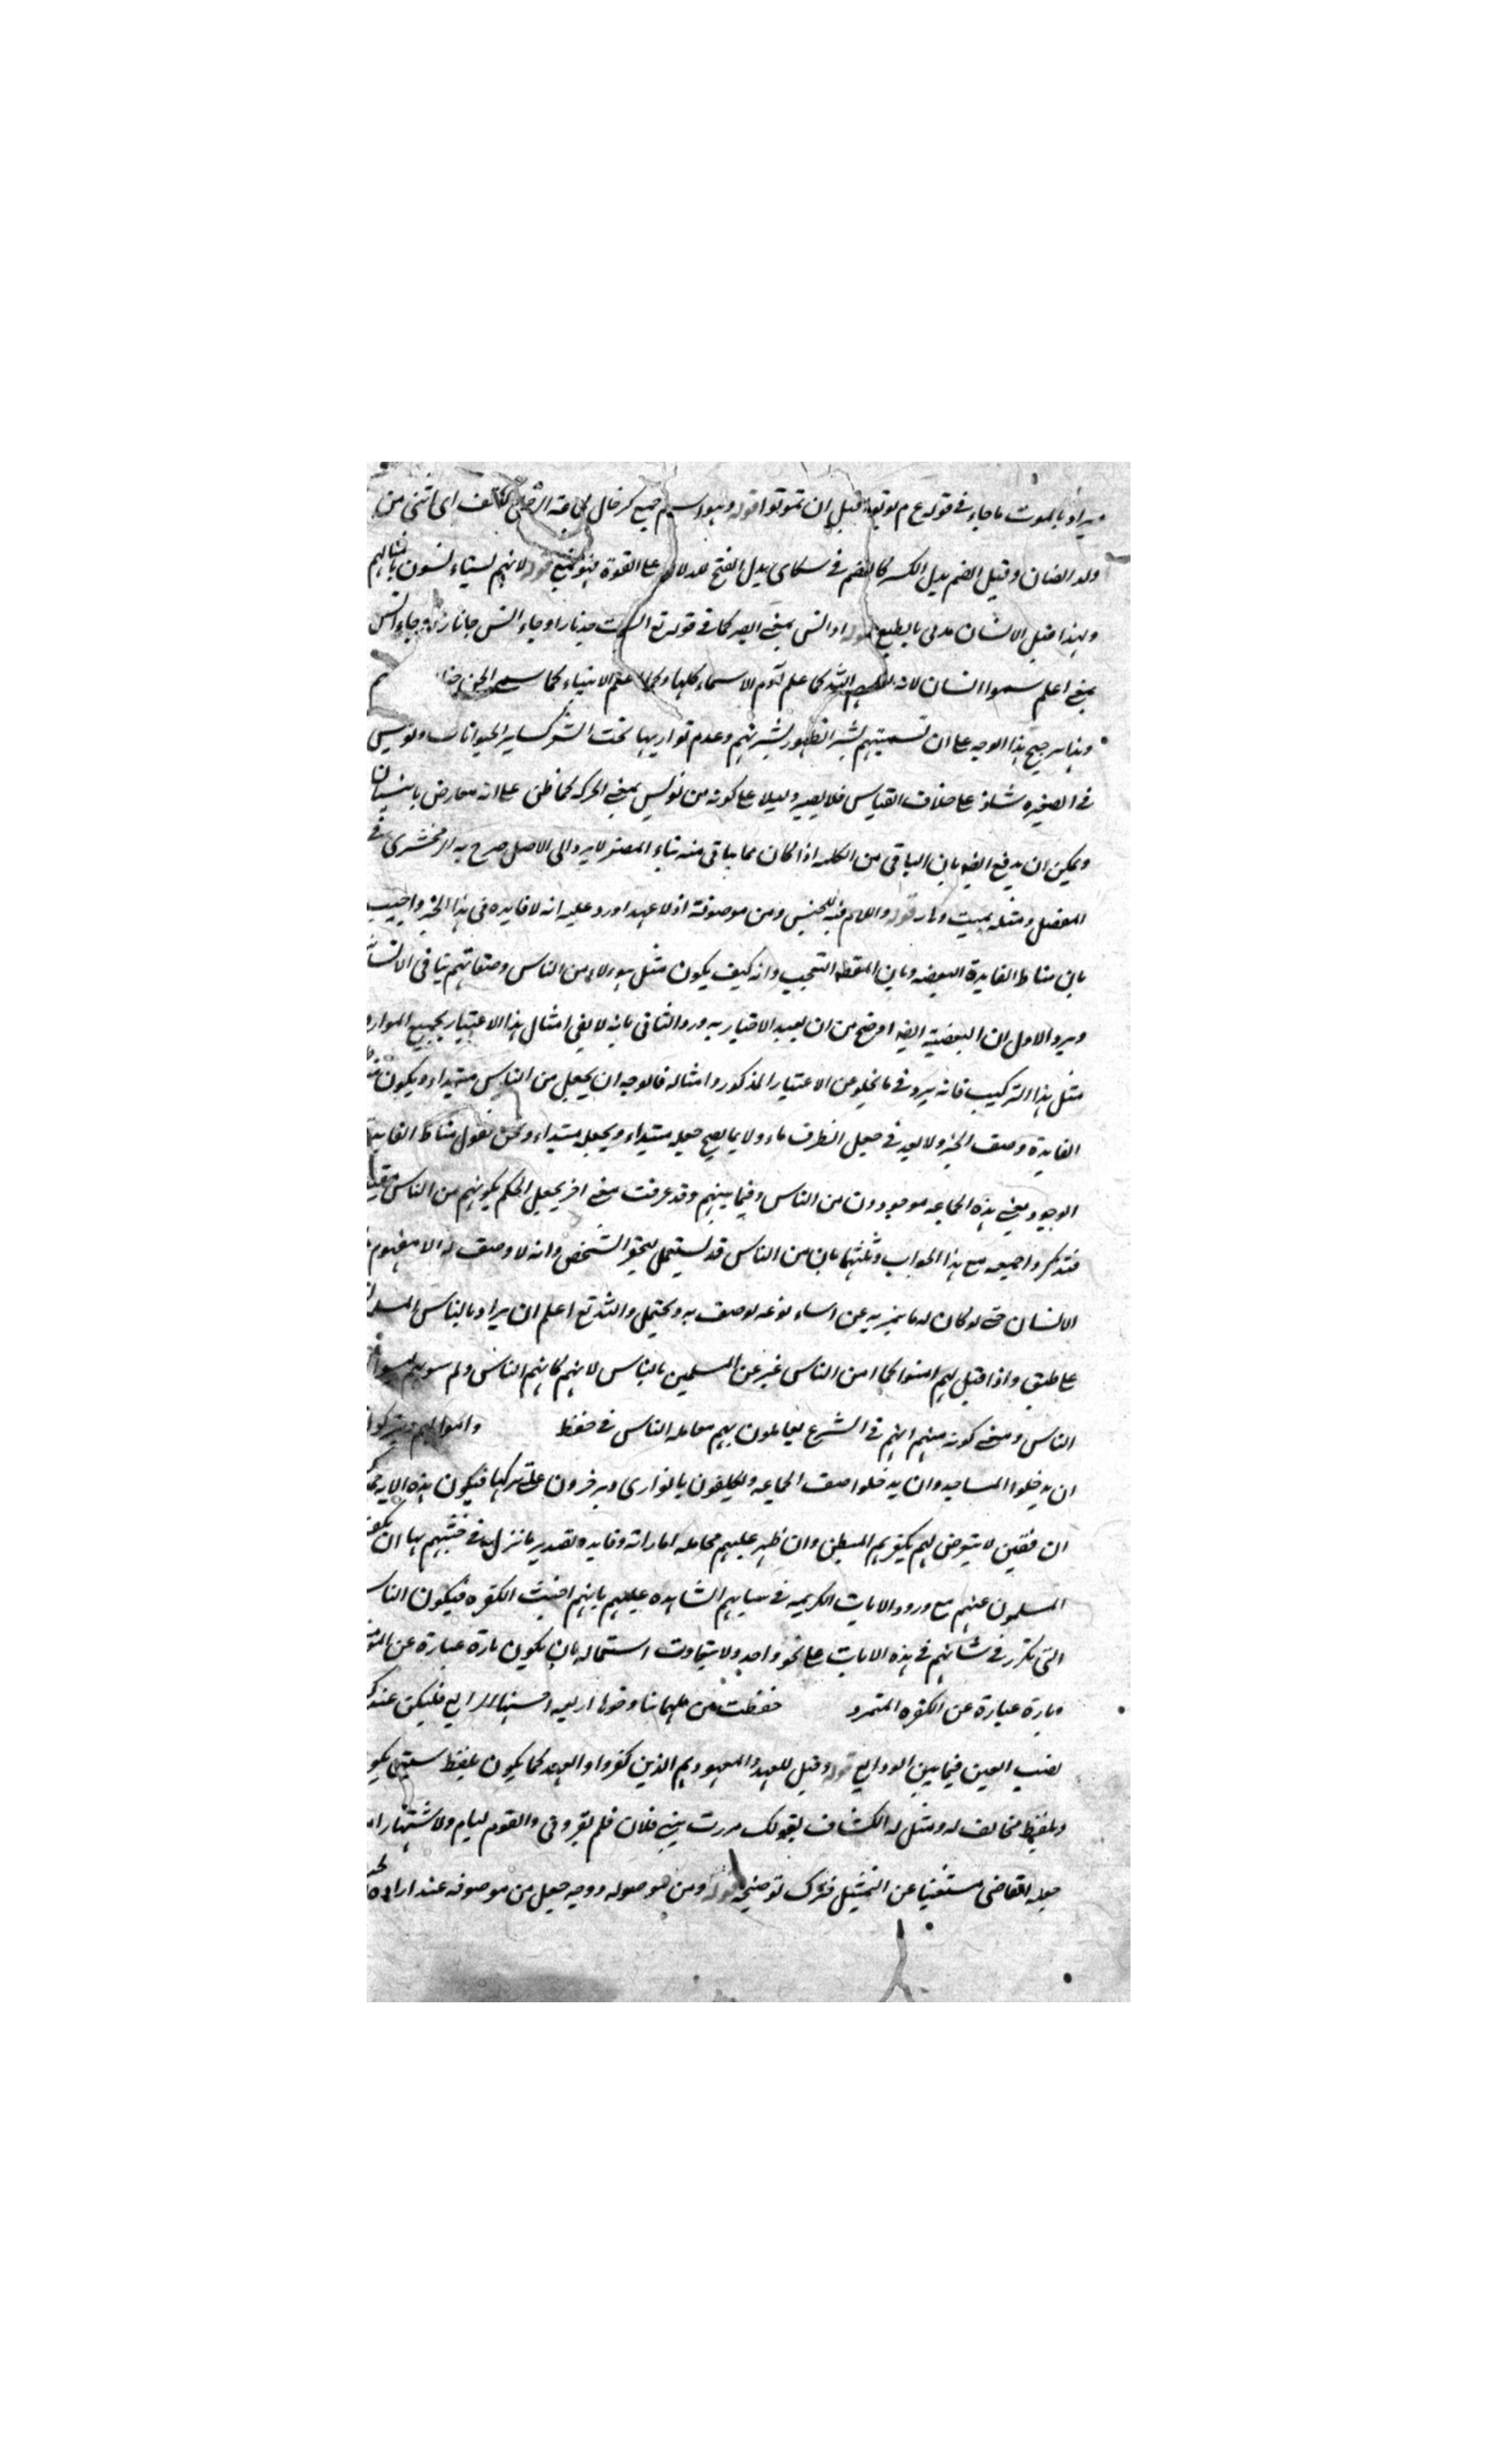 يراد بالموت ما جاء في قوله عم موتوا قبل ان تموتوا قوله وهو اسم جمع كرخال اى انثى من
ولد الضان وقيل الضم بدل الكسر كالضم في سكارى بدل الفتح للدلالة على القوة قوله لانهم يستأنسون بامثالهم
ولهذا قيل الانسان مدنى بالطبع قوله او انس بمعنى ابصر كما في قوله تع انست نارا وجاء انس
بمعنى اعلم سموا انسان لانه الله كما علم آدم الاسماء كلها علم الانبياء كما سمى الجن
وهذا يرجح هذا الوجه على ان تسميتهم بشر الظهور بشرتهم وعدم تواريها تحت الشعر كساير الحيوانات ونويس
في تصغيره شاذ على خلاف القياس فلا يصير دليلا على كونه من نوس بمعنى الحركة كما ظن على انه معارض بانيسيان
ويمكن ان يدفع ايضا بان الباقى من الكلمة اذا كان مما يتاتى منه بناء المصغر لا يرد الى الاصل صرح به الزمخشرى في
المفصل ومثله بميت وهار قوله واللام فيه للجنس ومن موصوفة اذ لا عهد اورد عليه انه لا فايدة في هذا الخبر واجيب
بان مناط الفايدة البعضية وبان المقصد التعجب وانه كيف يكون مثل هؤلاء من الناس وصفاتهم ينافى
ويرد الاول ان البعضية ايضا اوضح من ان يفيد الاخبار به ورد الثانى بانه لا يفى امثال هذا الاعتبار بجميع الموارد
مثل هذا التركيب فانه يرد في ما يخلو عن الاعتبار المذكور وامثاله فالوجه ان يجعل من الناس مبتداء ويكون
الفايدة وصف الخبر ولا بعد في جعل الظرف ماولا بما يصح جعله مبتداء ويجعله مبتداء ونحن نقول مناط الفايدة
الوجود يعنى هذه الجماعه موجودون من الناس وفيما بينهم وقد عرفت معنى اخر يجعل الحكم بكونهم من الناس مقيدا
فتذكر واجمعه مع هذا الجواب وثلثها بان من الناس قد يستعمل لتحقير الشخص وانه لا وصف له الا مفهوم
الانسان حتى لو كان له ما يميز به عن اسماء نوعه لوصف به ويحتمل والله تع اعلم ان يراد بالناس المسلمون
على طبق واذا قيل لهم امنوا كما امن الناس عبر عن المسلمين بالناس لانهم كانهم الناس ولم سويهم ليسوا
الناس ومعنى كونه منهم انهم في الشرع يعاملون بهم معامله الناس في حفظ
ان يدخلوا المساجد وان يدخلوا صف الجماعه ويكلفون بالغزارى ويزفرون على تركها فيكون هذه الاية
ان فقين لا يتعرض لهم بكفرهم المبطن وان ظهر عليهم مخامله اماراته وفايدة تصدير ما نزل في خبثهم بها ان يكف
المسلمون عنهم مع ورود الايات الكريمه في سبابهم الشاهده عليهم بانهم اخبث الكفره فيكون الناس
التى تكرر في شانهم في هذه الايات على نحو واحد ولا يتفاوت استعماله بان يكون تارة عبارة عن
وتارة عبارة عن الكفره المتمرد حفظت من الهاماتنا وخواربعه فليكن عندك
نصب العين فيما بين الودايع قوله وقيل للعهد والمعهود هم الذين كفروا والعهد كما يكون بلفظ سبق يكون
وبلفظ مخالف له ومثل له الكشاف بقولك مررت ببنى فلان فلم يقرونى والقوم ليام ولاشتهار
جعله القاضى مستغنيا عن التمثيل فترك توضيحه قوله ومن موصوله ووجه جعل من موصوفه عند ارادة